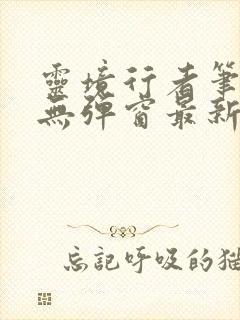 靈境行者筆
無彈窗最新
忘記呼吸的猫